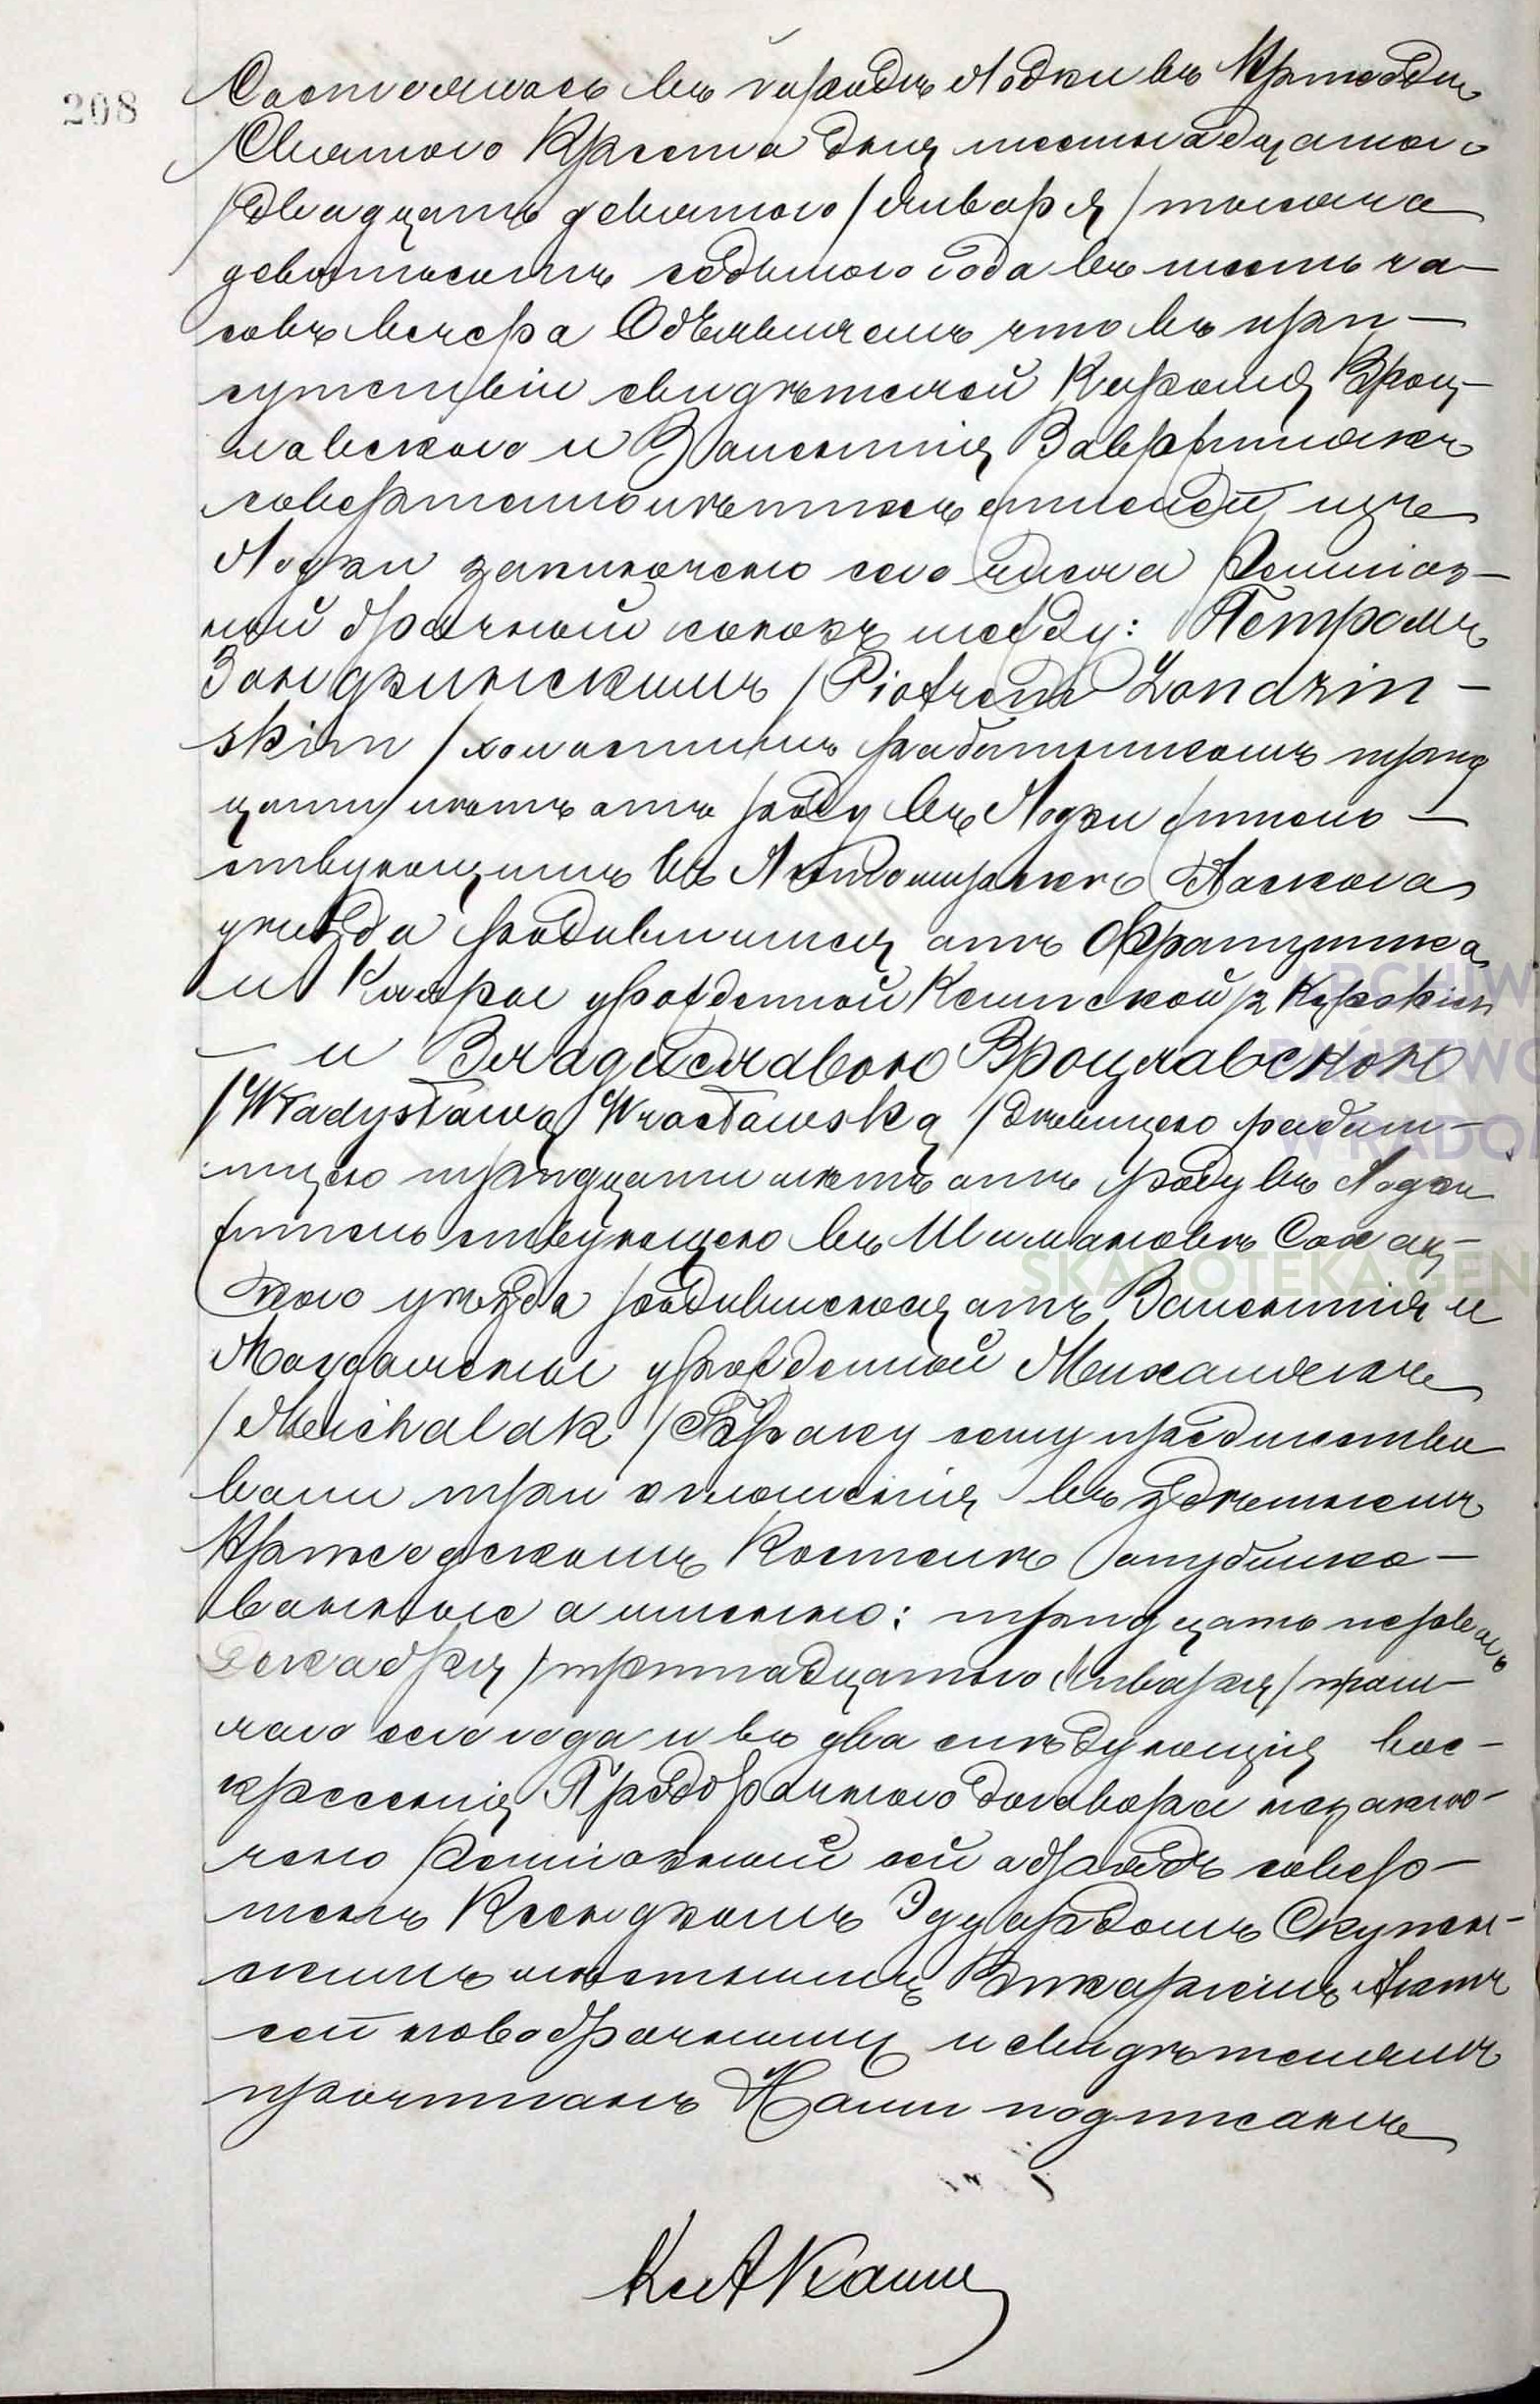 208
Состоялось въ городѣ Лодзи въ Приходѣ
Святого Креста дня шестнадцатого
/двадцать девятого/ Января/ тысяча
девятьсотъ седьмого года въ шесть ча-
совъ вечера Объявляемъ что въ при-
сутствіи свидѣтелей Кароля Вроц-
лавского и Валентія Вавржиняка
совершеннолѣтнихъ жителей изъ
Лодзи заключено сего числа Религіоз-
ный брачный союзъ между: Петромъ
Зондзинскимъ /Piotrem Zondzin-
skim/ холостымъ работникомъ трид
цати лѣтъ отъ роду въ Лодзи житель-
ствующимъ въ Ласкова
уѣзда родившимся отъ Францишка
и Клары урожденной /z
и Владиславою Вроцлавскою
/Władysławą Wrocławską/ дѣвицею работ-
ницею тридцати лѣтъ отъ роду въ Лодзи
жительствующею въ Шимановѣ Сохач-
кого уѣзда родившеюся отъ Валентія и
Магдалены урожденной Михалякъ
/Michalak/ Браку сему предшество
вали три оглашенія въ здѣшнемъ
Приходскомъ Костелѣ опублико-
ванные а именно: тридцать первого
Декабря /тринадцатого Января/ прош-
лаго сего года и въ два слѣдующія вос-
кресенія Предбрачного договора незаклю-
чено Религіозный сей обрядъ совер-
шенъ Ксендзомъ Эдуардомъ
мѣстнымъ Викаріемъ Актъ
сей новобрачнымъ и свидѣтелямъ
прочитанъ Нами подписанъ
Кс А
ARCHIW
PAŃSTWO
W RADO
SKANOTEKA GEN